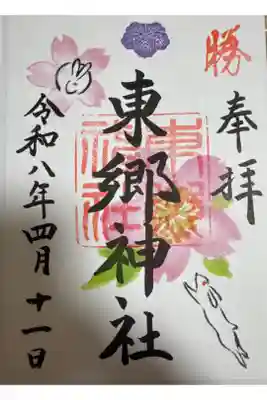 勝
奉拝
東郷神社
東郷神社
令和八年四月十一日